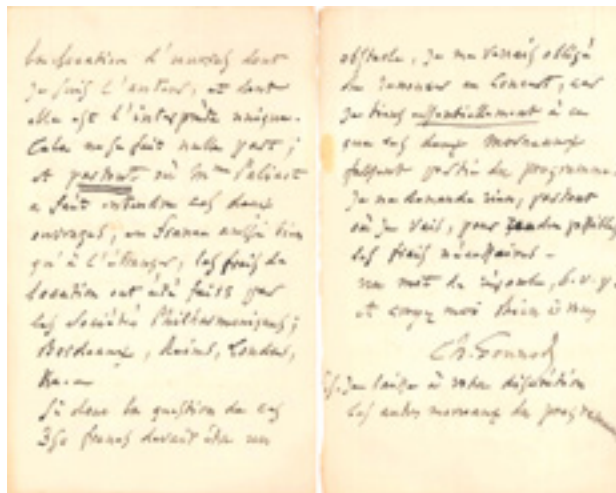 location d'œuvres dont
je suis l'auteur, et dont
elle est l'interprète unique.
Cela ne se fait nulle part ;
et partout où Mme Palicot
a fait entendre ces deux
ouvrages, en France aussi bien
qu'à l'étranger, les frais de
location ont été faits par
les Sociétés Philharmoniques ;
Bordeaux, Reims, Londres,
Si donc la question de ces
350 francs devait être un
obstacle, je me verrais obligé
de renoncer au Concert, car
je tiens essentiellement à ce
que ces deux morceaux
fassent partie du programme.
Je ne demande rien, partout
où je vais, pour rendre possibles
les frais nécessaires -
un mot de réponse, s. v. p.
et croyez moi bien à vous
Ch. Gounod
P.S. Je laisse à votre discrétion
les autres morceaux du